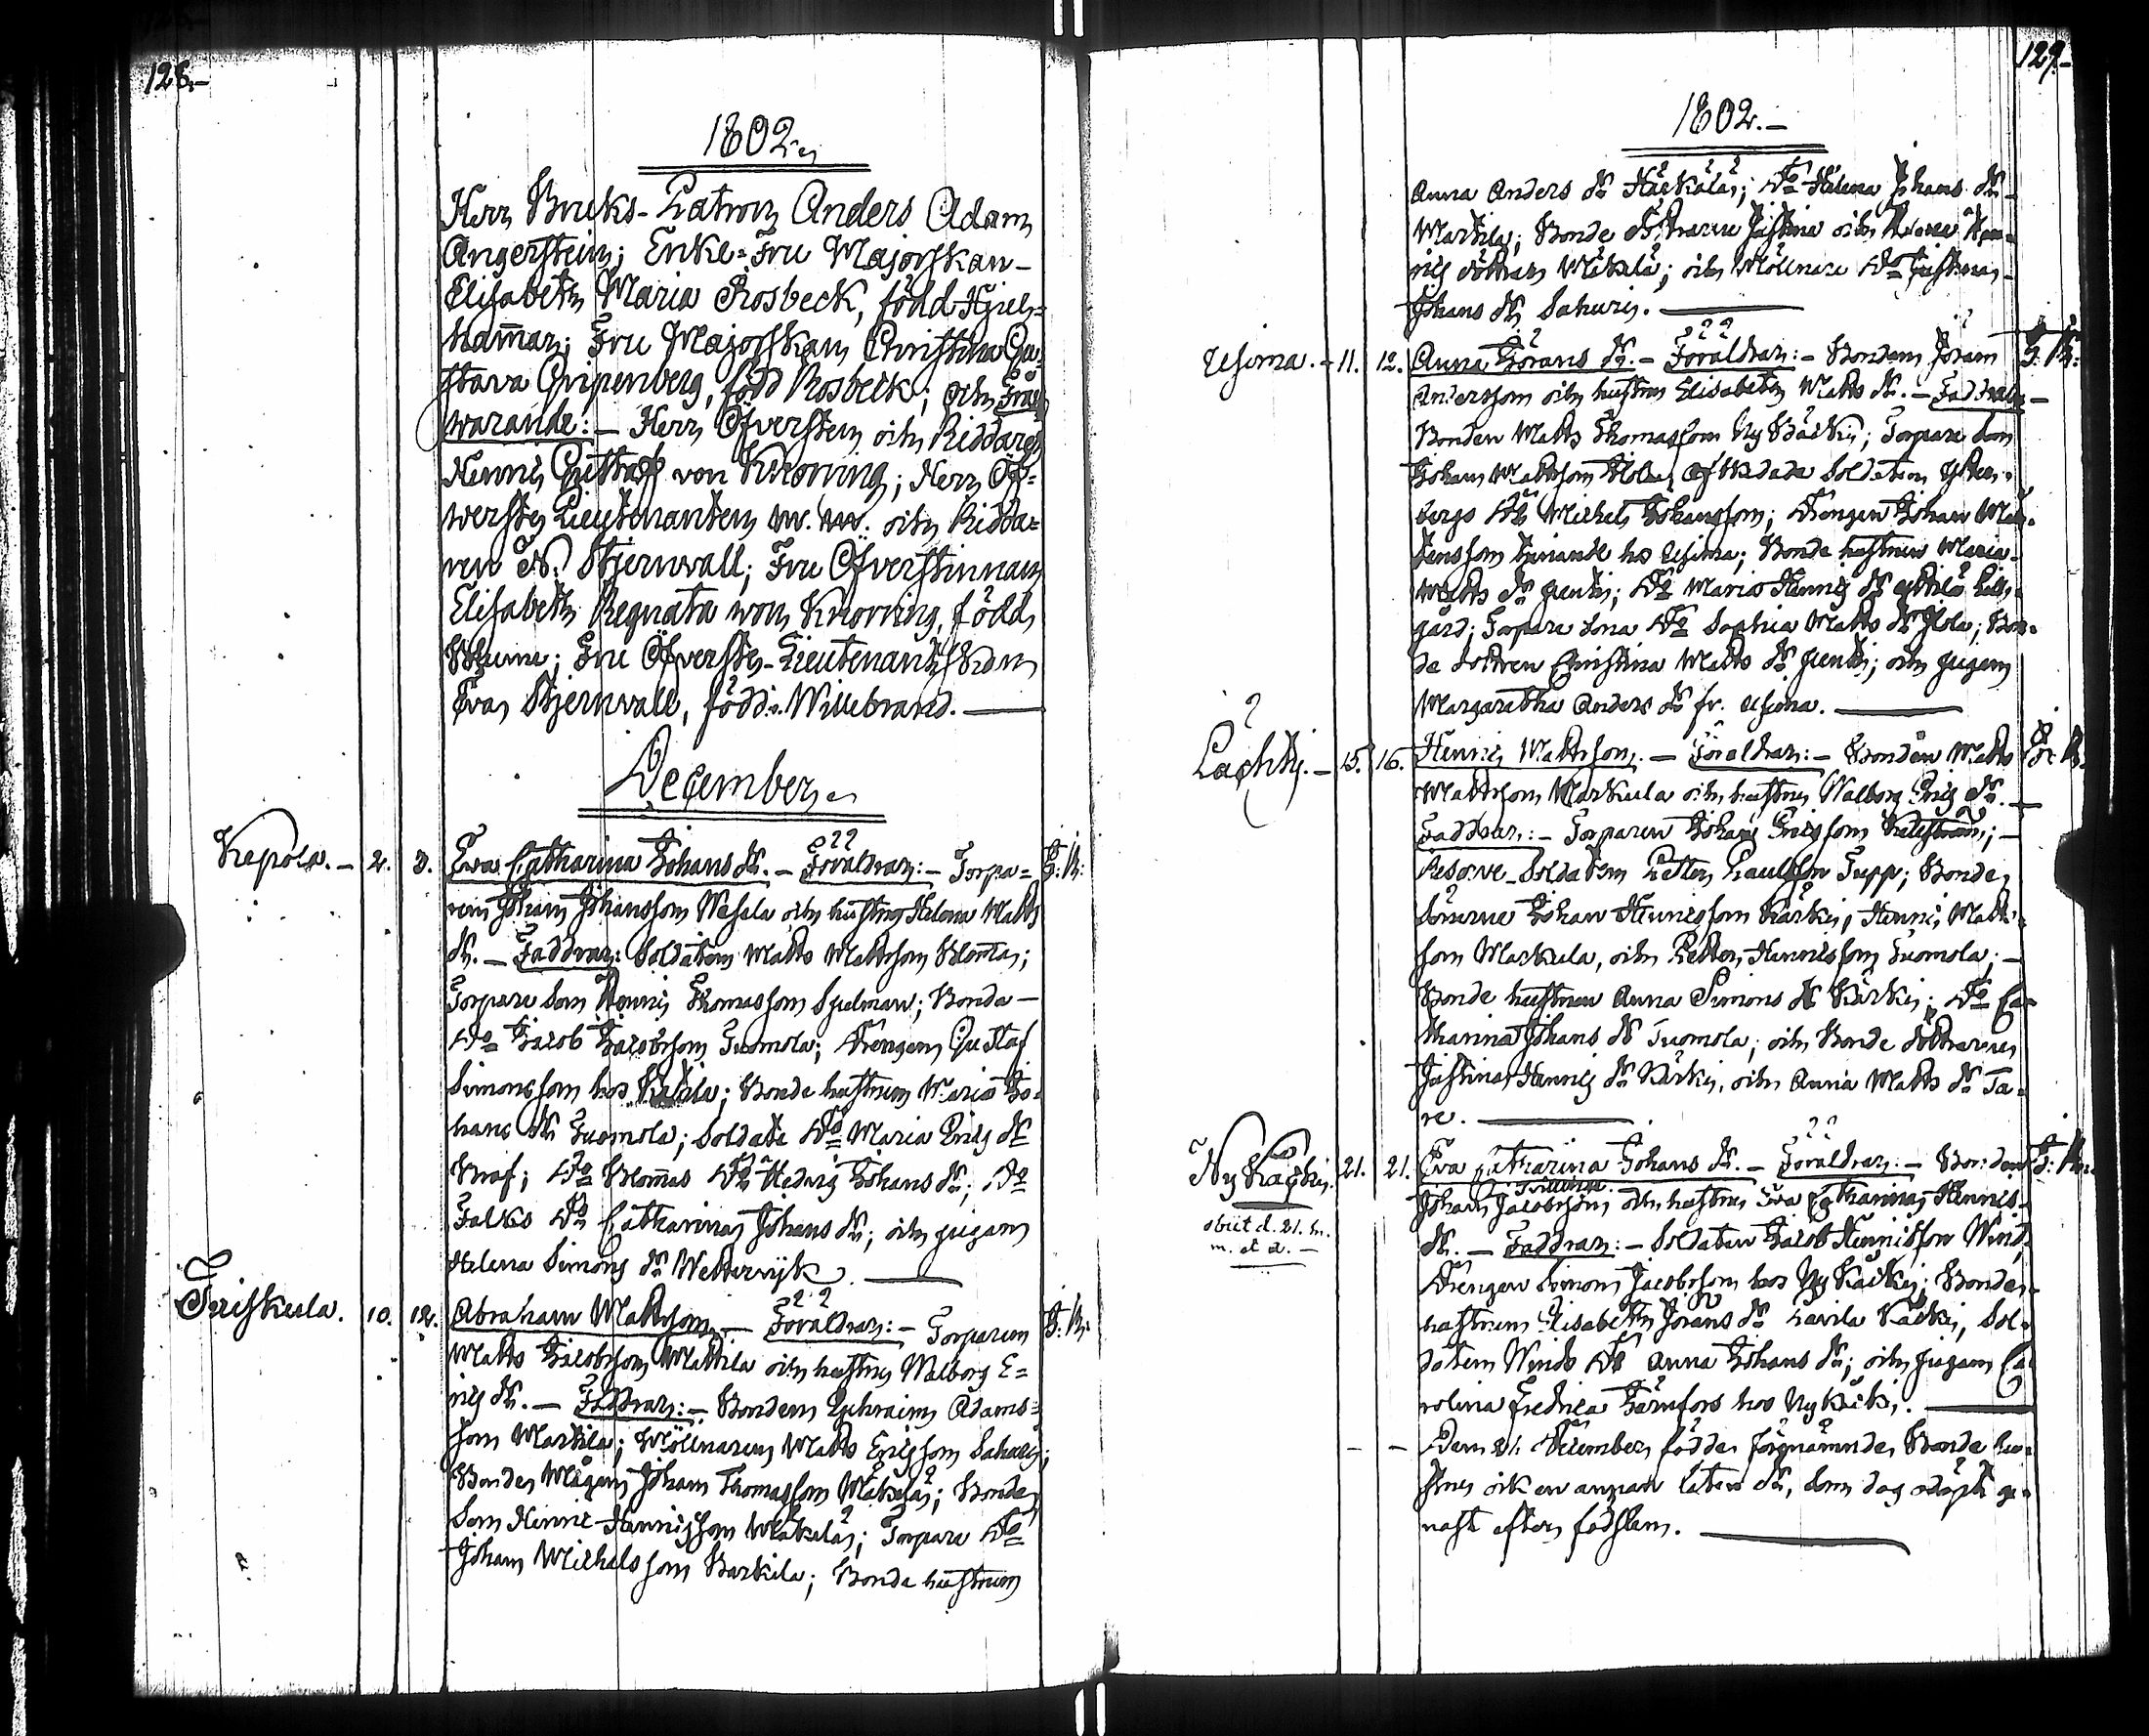 128.-
1802.
Herr Bruks-Patron Anders Adam
Angerstein; Enke-Fru Majorskan
Elisabeth Maria Rosbeck, född Hjelm=
hammar; Fru Majorskan Christina Gu=
stava Gripenberg, född Rosbeck; och Från
warande:- Herr Öfversten och Riddaren
Henric Gustaff von Knorring; Herr Öf=
werste Lieutenanten och Ridda=
ren Stjernvall; Fru Öfverstinnan
Elisabeth Regnata von Knorring, född
Fru Öfverste-Lieutenantskan
Eva Stjernvall, född Willebrand.
December
Kepola. - 2. 3. Eva Catharina Johans dr. - Föräldrar:- Torpa=
ren Johan Johansson Wesala och hustru Helena Matts
dr. - Faddrar: Soldaten Matts Mattsson Blomma;
Torpare Son Henric Thomasson Spelman; Bonde
Do Jacob Jacobsson Tuomola; Drengen Gustaf
Simonsson hos Bonde hustrun Maria Jo=
hans dr Tuomola; Soldate Do Maria Erics dr
Do Blommas Do Hedvig Johans dr; Do
Falks Do Catharina Johans dr; och pigan
Helena Simons dr Wetterwijk.
Friskula. 10. 12. Abraham Mattsson. - Föräldrar:- Torparen
Matts Jacobsson Mattila och hustru Walborg E=
rics dr. - Faddrar:- Bonden Ephraim Adams=
son Markila; Möllnaren Matts Ericsson Sahuri;
Bonde Mågen Johan Thomasson Mäkelä; Bonde
Son Henric Henricsson Mäkelä; Torpare Do
Johan Michelsson Bonde hustrun
129.-
1802.-
Anna Anders dr Do Helena Johans dr
Markila; Bonde döttrarne Justina och Hen=
rics döttrar Mäkelä; och Möllnare Do Justina
Johans dr Sahuri.
Uhima. - 11. 12. Anna Görans dr. - Föräldrar:- Bonden Göran
Andersson och hustru Elisabeth Matts dr. - Faddrar
Bonden Matts Thomasson Ny Käcki; Torpare Son
Johan Mattsson Afskedade Soldaten
bergs Michel Johansson; Drengen Johan Mår=
tensson tjenande hos Uhima; Bonde hustrun Maria
Matts dr Do Maria Henrics dr
gård; Torpare Sona Do Sophia Matts dr Bon=
de dottren Christina Matts dr och pigan
Margaretha Anders dr fr. Uhima.
Lachty. - 15. 16. Henric Mattsson. - Föräldrar:- Bonden Matts
Mattsson Markula och hustru Walborg Erics dr.
Faddrar:- Torparen Johan Ericsson
Reserve-Soldaten Petter Paulsson Tupp; Bonde
sönerne Johan Henricsson Kärki, Henric Matts=
son Markula, och Petter Henricsson Tuomola;
Bonde hustrun Anna Simons dr Kärki; Do Ca=
tharina Johans dr Tuomola; och Bonde döttrarne
Justina Henrics dr Kärki, och Anna Matts dr Ta=
re.
Ny Käcki. 21. 21. Eva Catharina Johans dr. - Föräldrar:- Bonden
obiit d. 21. h.
m. et a.
Johan Jacobsson och hustru Eva Catharina Henrics
dr. - Faddrar:- Soldaten Jacob Henricsson Wind,
Drengen Simon Jacobsson hos Ny Käcki; Bonde
hustrun Elisabeth Görans dr Lavila Käcki, Sol=
daten Winds Do Anna Johans dr; och pigan Ca
rolina Fredrica hos Ny Käcki.
- - Den 21. December födde förenämnde Bonde hu=
stru ock en annan dr, som dog odöpt ge=
nast efter födslen.